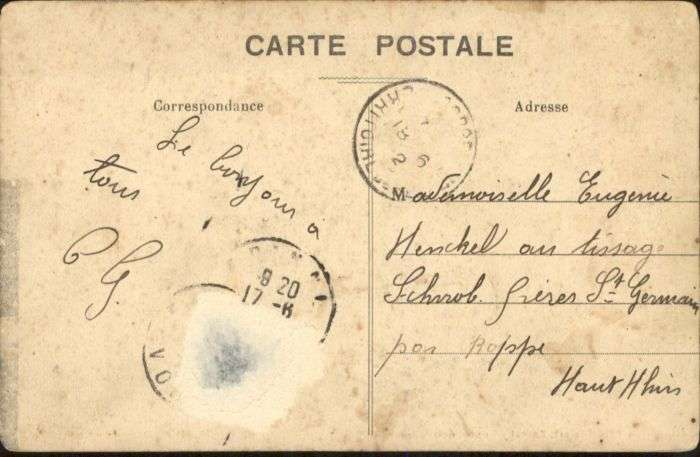 CARTE POSTALE
Correspondance
Adresse
Le bonjour a
tous
P G.
8 20
17 -8
VO
18
6
2
Mademoiselle Eugenie
Henckel au tissage
Schwob frères St Germain
par Roppe
Haut Rhin